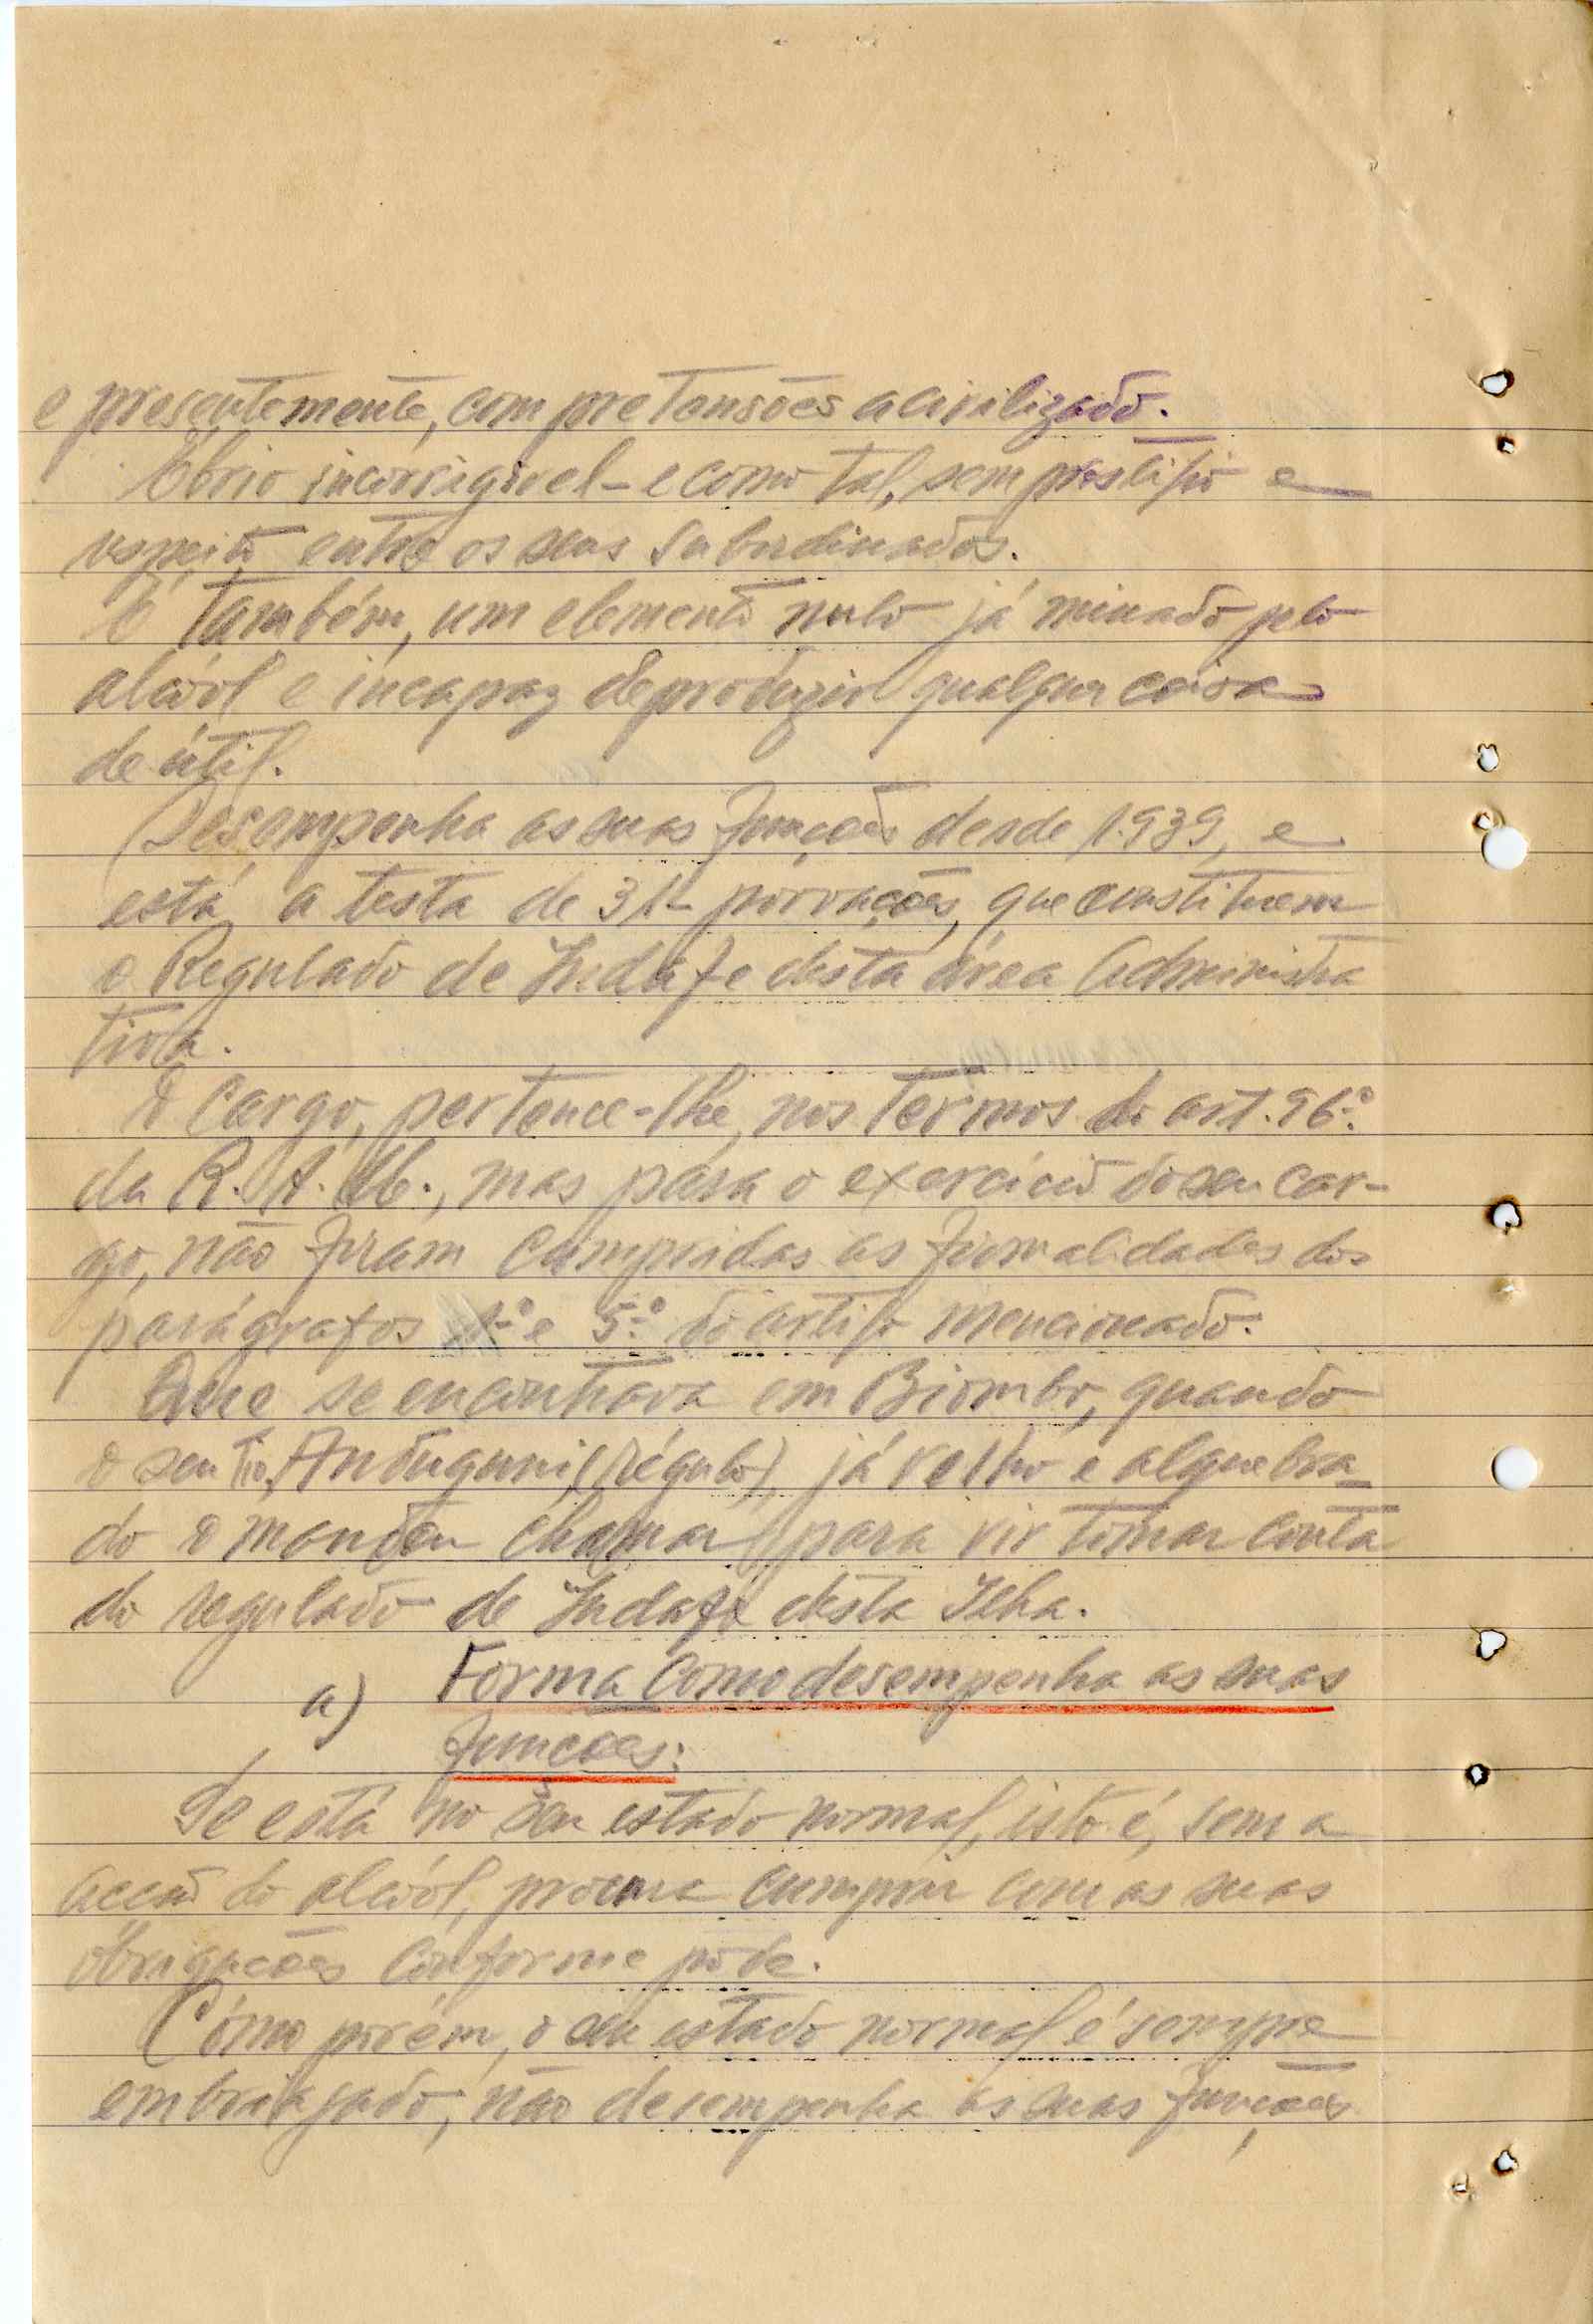 e presentemente, com pretensões a civilizado.
Ébrio incorrigivel - e como tal, sem prestígio e
respeito entre os seus subordinados.
É também, um elemento nulo já minado pelo
alcóol e incapaz de produzir qualquer coisa
de útil.
Desempenha as suas funções desde 1.939, e
está, a testa de 31 povoações, que constituem
o Regulado de Indafe desta área Administra
tiva.
O Cargo, pertence-lhe, nos termos do art. 96.º
da R.A.U., mas para o exercício do seu car-
go, não foram cumpridas as formalidades dos
parágrafos 1.º e 5.º do artigo mencionado.
Que se encontrava em Biombo, quando
o seu tio, (régulo), já velho e alquebra-
do o mandou chamar para vir tomar conta
do regulado de Indafe desta Ilha.
a) Forma como desempenha as suas
funções:
Se está no seu estado normal, isto é, sem a
acção do alcóol, procura cumprir com as suas
obrigações conforme pode.
Cómo porém, o seu estado normal é sempre
embriagado, não desempenha as suas funções